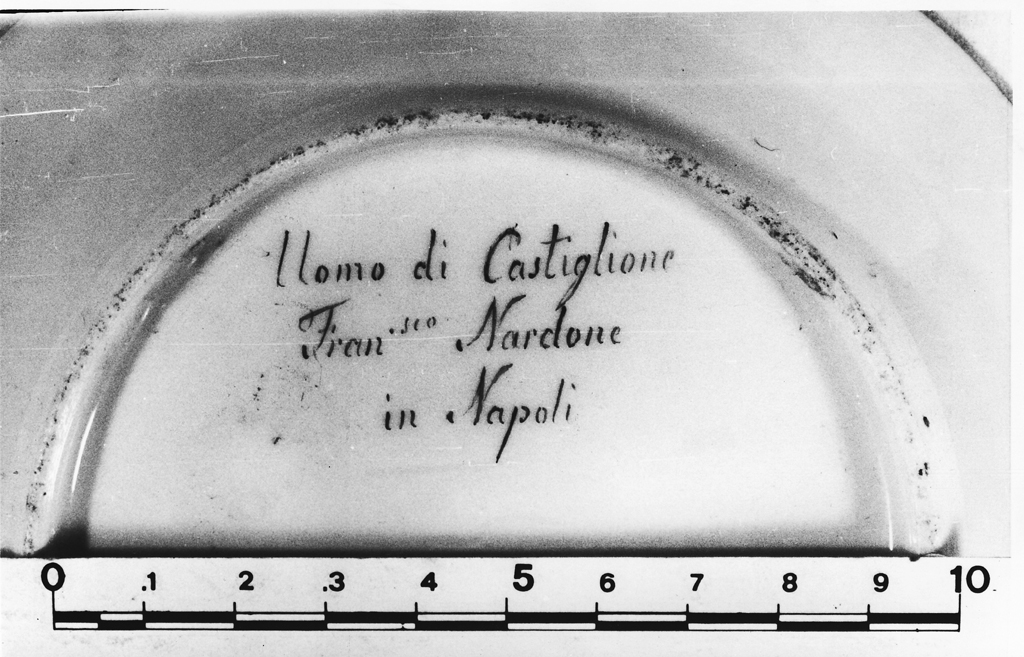 Uomo di Castiglione
Fran.sco Nardone
in Napoli
0 .1 2 .3 4 5 6 7 8 9 10